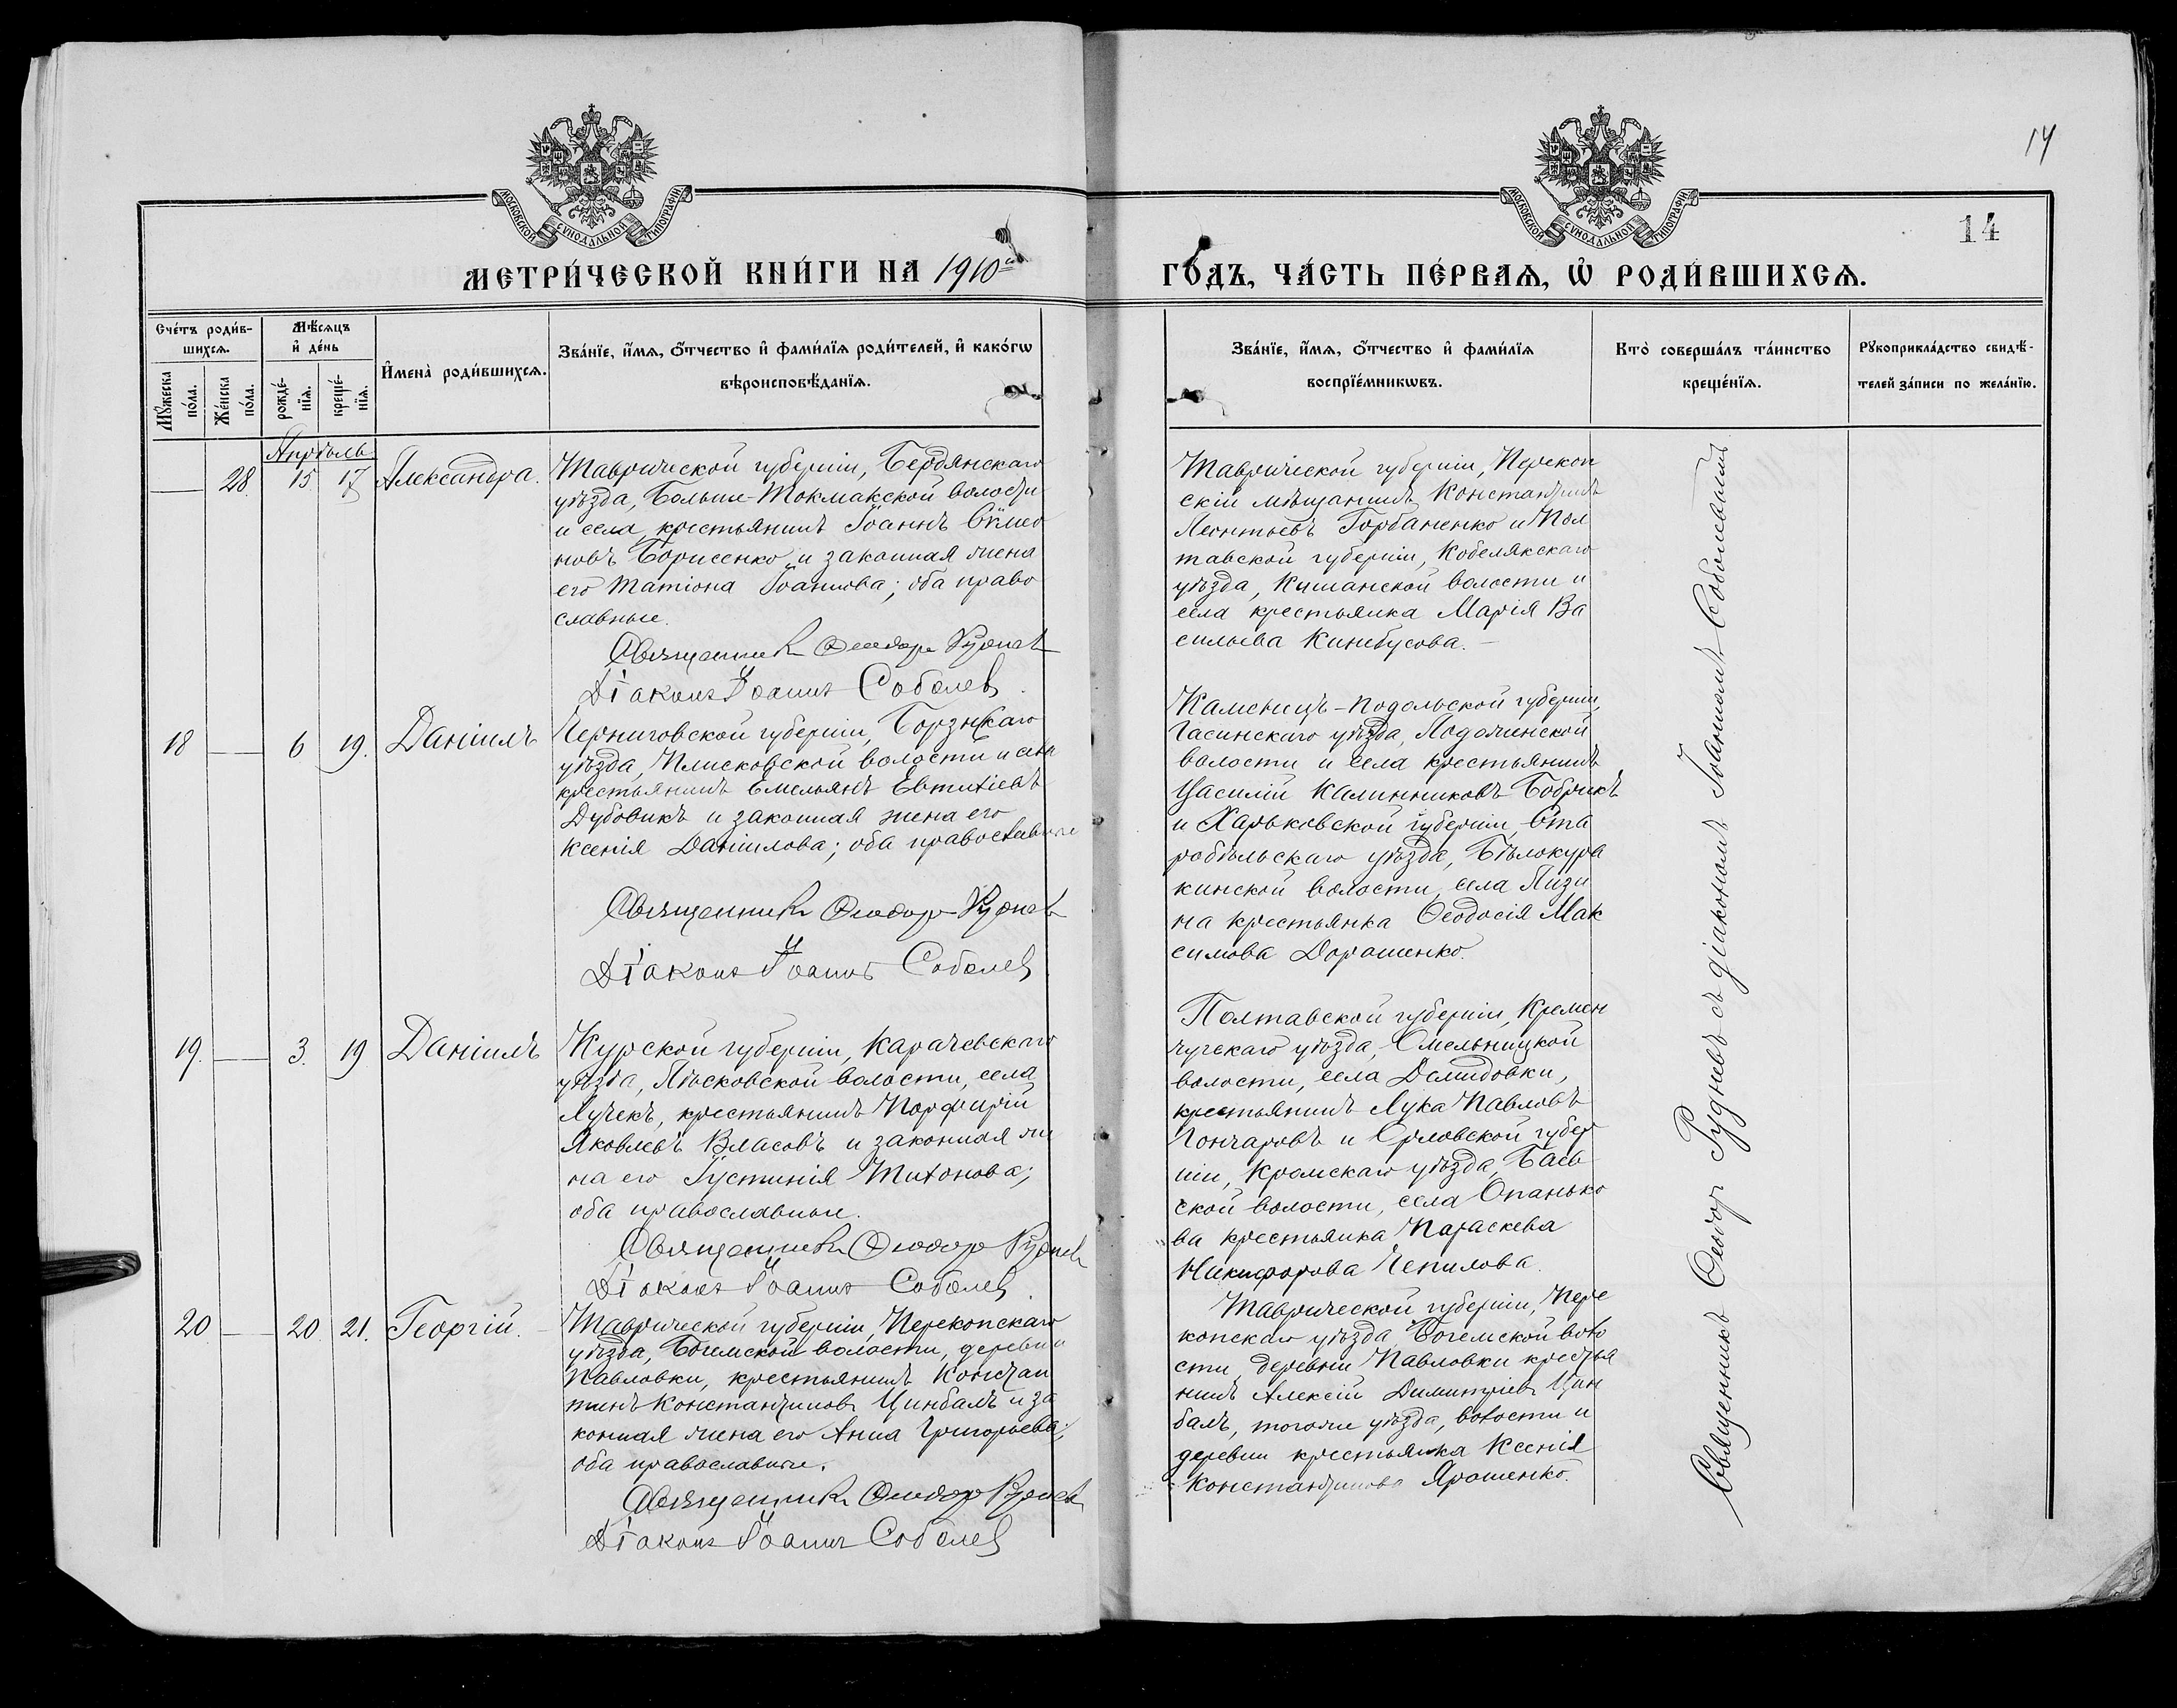 14
МОСКОВСКОЙ СУНОДАЛЬНОЙ ТИПОГРАФІИ
МОСКОВСКОЙ СУНОДАЛЬНОЙ ТИПОГРАФІИ
14
МЕТРИ́ЧЕСКОЙ КНИ́ГИ НА 1910й
ГО́ДЪ, ЧА́СТЬ ПЕ́РВАѦ, Ѡ҆ РОДИ́ВШИХСѦ.
Сче́тъ роди́в-
шихсѧ.
Мꙋ́жеска по́ла.
Же́нска по́ла.
Мѣ́сѧцъ
и҆ де́нь
рожде́-нїѧ.
креще́-нїѧ.
И҆мена̀ роди́вшихсѧ.
Зва́нїе, и҆́мѧ, ѻ҆́тчество и҆ фами́лїѧ роди́телей, и҆ како́гѡ
вѣроисповѣ́данїѧ.
Зва́нїе, и҆́мѧ, ѻ҆́тчество и҆ фами́лїѧ
воспрїе́мникѡвъ.
Кто̀ соверша́лъ та́инство
креще́нїѧ.
Рꙋкоприкла́дство свидѣ́-
телей за́писи по жела́нїю.
Апрѣль
28 15 17 Александра.
Таврической губерніи, Бердянскаго
уѣзда, Больше-Токмакской волости
и села, крестьянинъ Іоаннъ Сѵмео
новъ Борисенко и законная жена
его Татіана Іоаннова; оба право
славные.
Священникъ Ѳеодоръ Руднев
Діаконъ Іоаннъ Соболев
Таврической губерніи, Перекоп
скій мѣщанинъ Константинъ
Леонтьевъ Горбаненко и Пол
тавской губерніи, Кобелякскаго
уѣзда, Кишанской волости и
села крестьянка Марія Ва
сильева Кинебусова.
18 6 19. Даніилъ
Черниговской губерніи, Борзнскаго
уѣзда, Плисковской волости и села
крестьянинъ Емельянъ Евтихіевъ
Дубовикъ и законная жена его
Ксенія Даніилова; оба православные
Священникъ Ѳеодоръ Руднев
Діаконъ Іоаннъ Соболев
Каменицъ-Подольской губерніи,
уѣзда,
волости и села крестьянинъ
Василій Калинниковъ Бобрикъ
и Харьковской губерніи, Ста
робѣльскаго уѣзда, Бѣлокура
кинской волости, села Лизи
на крестьянка Ѳеодосія Мак
симова Дорошенко.
19. 3. 19 Даніилъ
Курской губерніи, Карачевскаго
уѣзда, Лѣсковской волости, села
Лучекъ, крестьянинъ Порфирій
Яковлевъ Власовъ и законная же
на его Іустинія Тихонова;
оба православные.
Священникъ Ѳеодоръ Руднев
Діаконъ Іоаннъ Соболев
Полтавской губерніи, Кремен
чугскаго уѣзда, Омельницкой
волости, села Демидовки,
крестьянинъ Лука Павловъ
Гончаровъ и Орловской губер
ніи, Кромскаго уѣзда, Баев
ской волости, села Опанько
ва крестьянка Параскева
Никифорова Чепилова.
20 20 21. Георгій.
Таврической губерніи, Перекопскаго
уѣзда, Богемской волости, деревни
Павловки, крестьянинъ Констан
тинъ Константиновъ Цинбалъ и за
конная жена его Анна Григорьева;
оба православные.
Священникъ Ѳеодоръ Руднев
Діаконъ Іоаннъ Соболев
Таврической губерніи, Пере
копскаго уѣзда, Богемской воло
сти, деревни Павловки крестья
нинъ Алексій Димитріевъ Цин
балъ, тогоже уѣзда, волости и
деревни крестьянка Ксенія
Константинова Ярошенко.
Священникъ Ѳеодоръ Рудневъ съ діакономъ Іоанномъ Соболевымъ